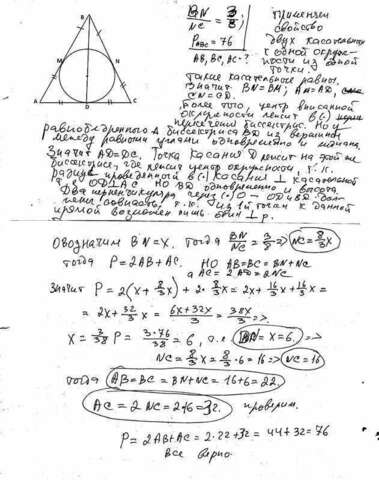 B
M
N
A
D
C
BN/NC = 3/8;
P_ABC = 76
AB, BC, AC - ?
Применяем
свойство
двух касательных
к одной окруж-
ности из одной
точки.
Такие касательные равны.
Значит BN=BM; AM=AD,
CN=CD.
Более того, центр вписанной
окружности лежит в (·) пере
пересечения биссектрис. Но у
равнобедренного Δ биссектриса BD из вершины
между равными углами одновременно и медиана.
Значит AD=DC, Точка касания D лежит на этой же
биссектрисе, где лежит центр окружности, т.к.
радиус проведенный в (·) касания ⊥ касательной
OD⊥AC но BD одновременно и высота.
Два перпендикуляра через (·) OD и BD
совпадать, т.к. из 1-й точки к данной
прямой возможен лишь один ⊥ р.
Обозначим BN=x. Тогда BN/NC = 3/8 => NC = 8/3 x
тогда P=2AB+AC. но AB=BC=BN+NC
а AC=2AD=2NC
Значит P = 2(x + 8/3 x) + 2·8/3 x = 2x + 16/3 x + 16/3 x =
= 2x + 32/3 x = (6x+32x)/3 = 38x/3 =>
x = 3/38 P = 3·76/38 = 6, т.е. BN = x = 6. =>
NC = 8/3 x = 8/3 · 6 = 16 => NC = 16
тогда AB=BC = BN+NC = 16+6 = 22.
AC = 2 NC = 2·16 = 32. проверим.
P = 2AB+AC = 2·22+32 = 44+32 = 76
Все верно.